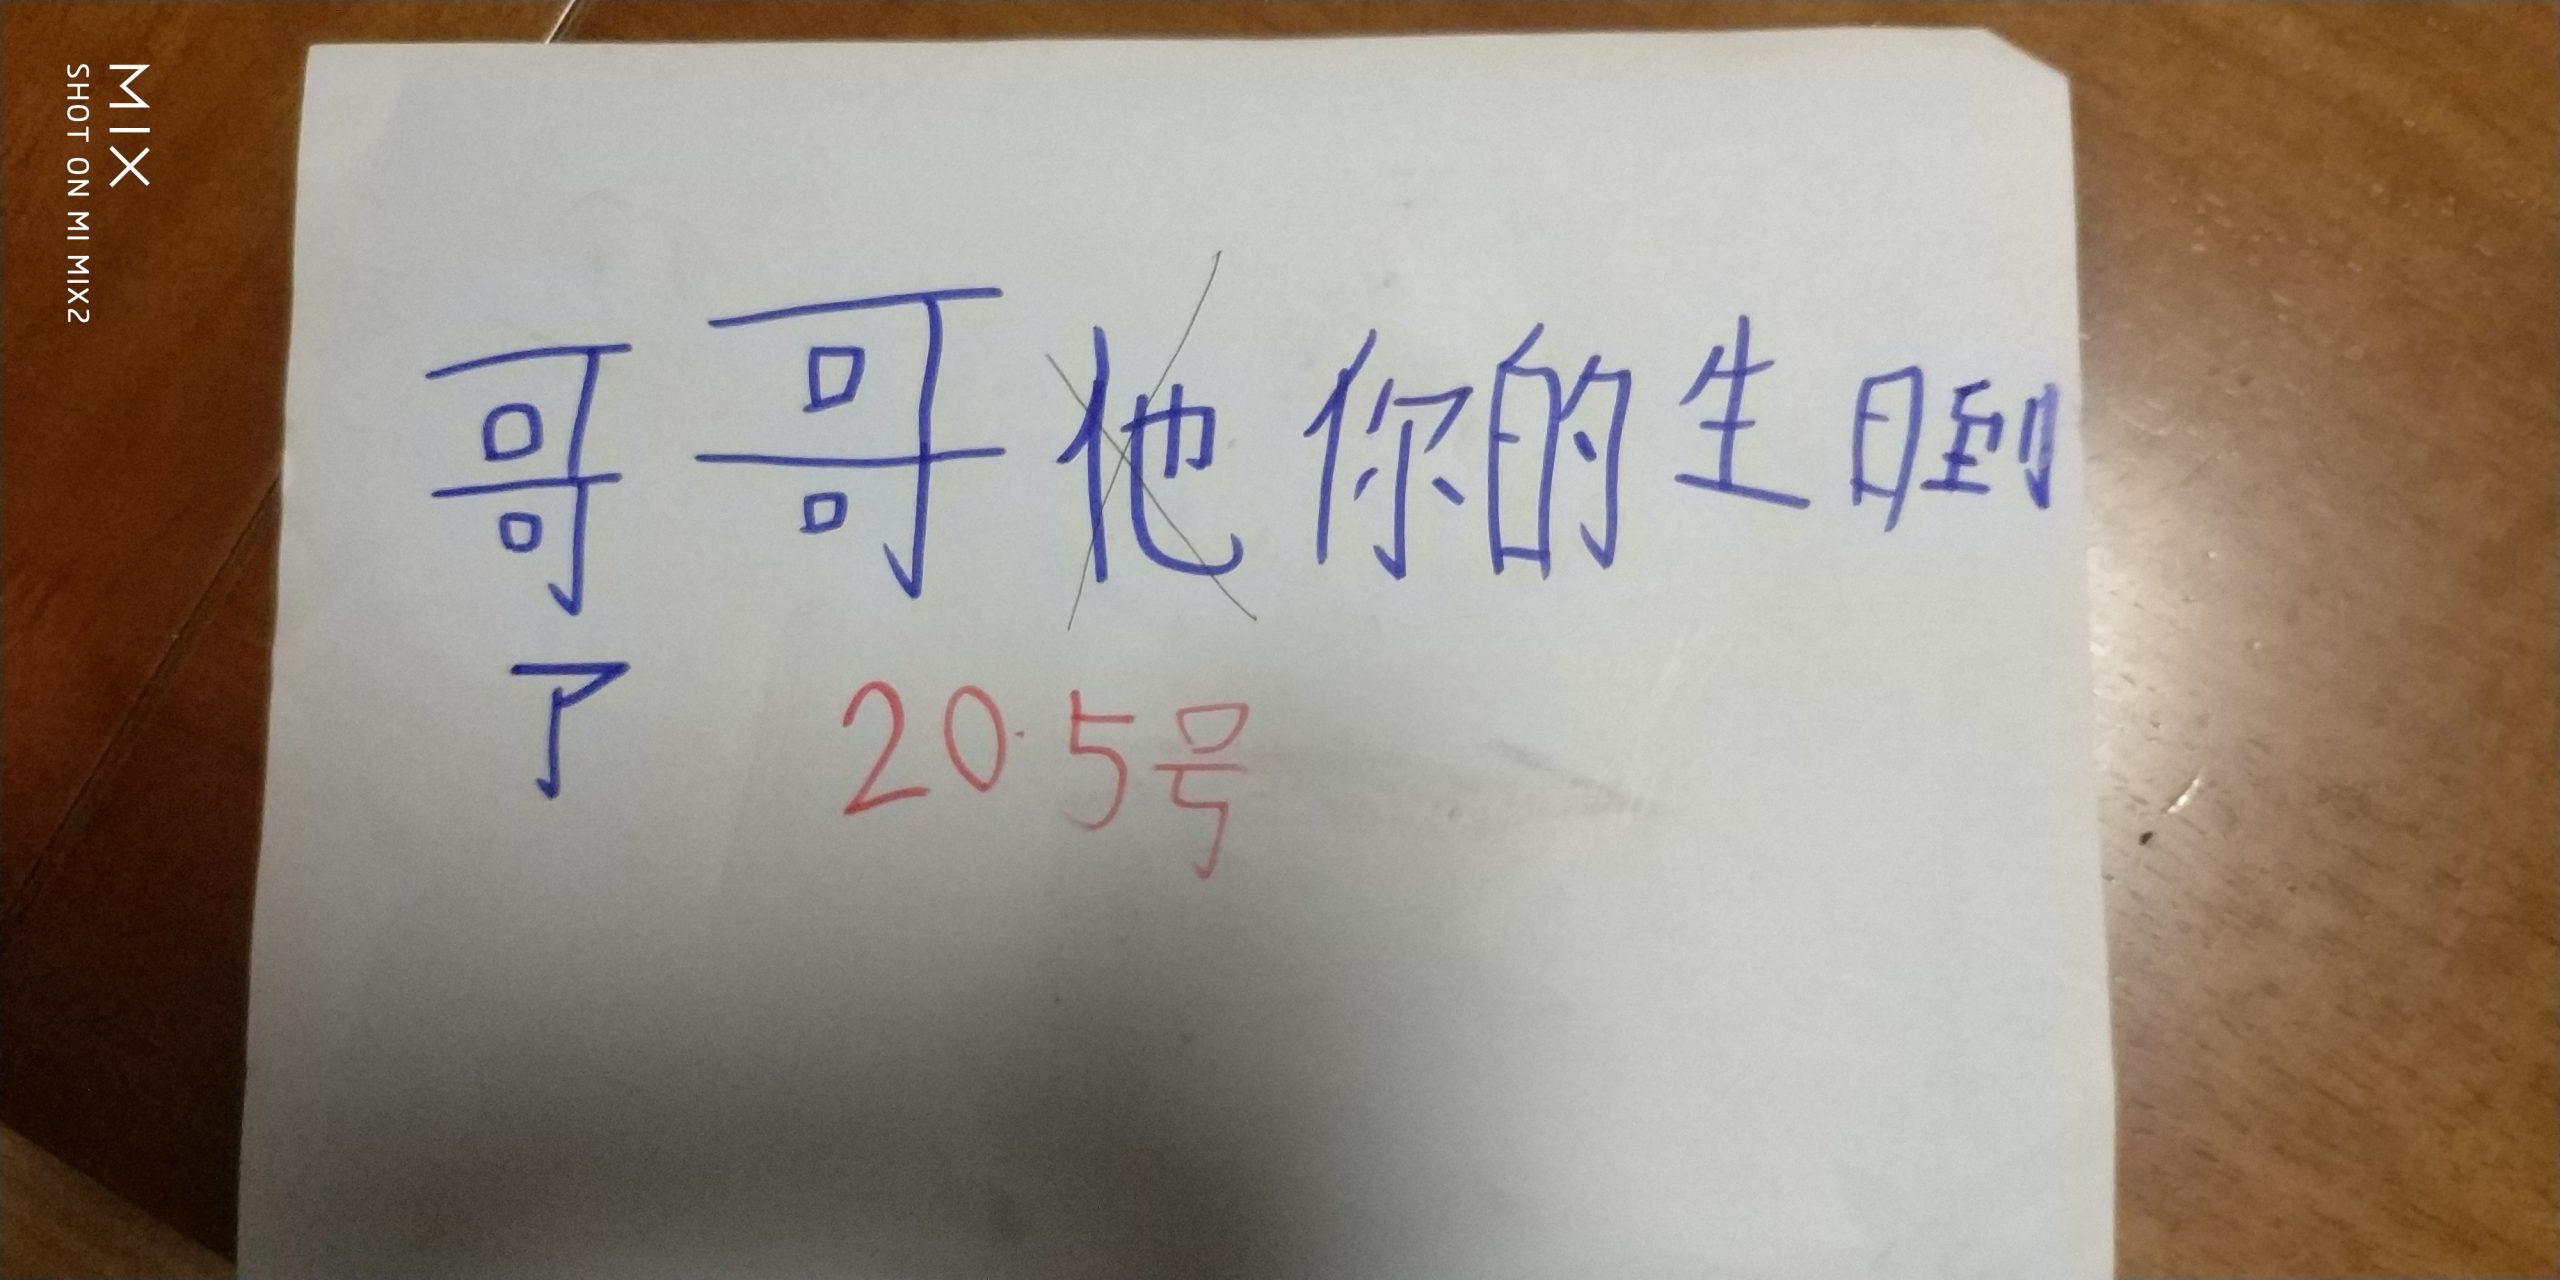 MIX
SHOT ON MI MIX2
哥哥他你的生日到
了 20.5号